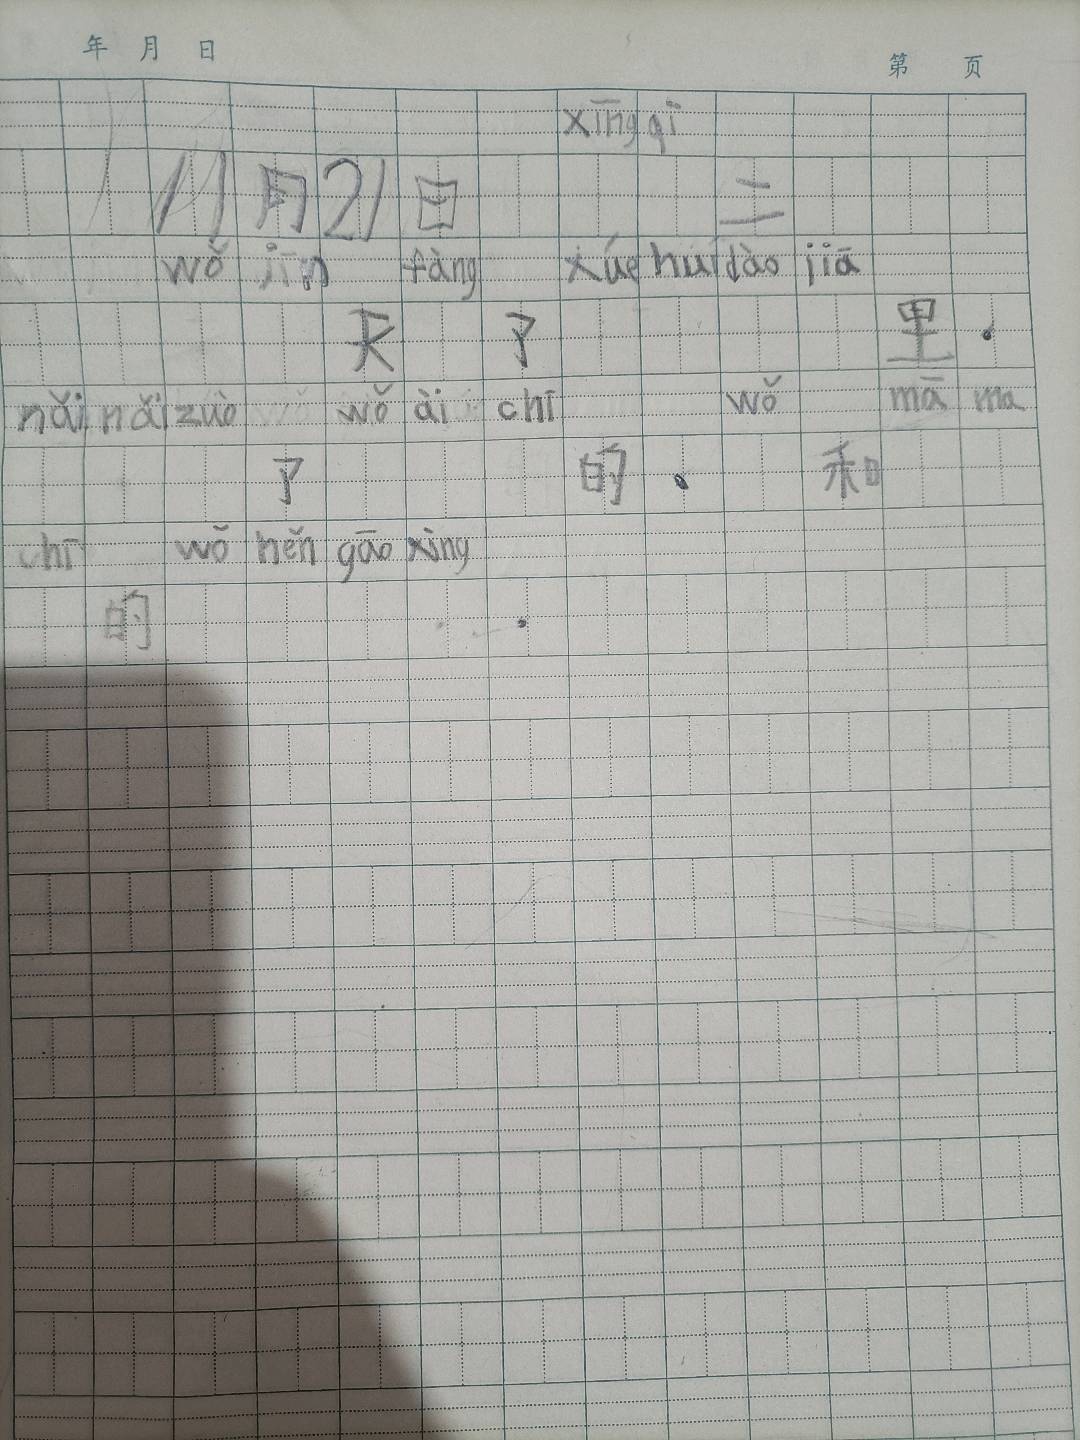 年 月 日
第 页
xīng qi
11月21日 二
wǒ jīn fàng xúe huí dào jiā
天 了 里.
nǎi nǎi zuò wǒ ài chī wǒ mā ma
了 的. 和
chī wǒ hěn gāo xìng
的 .